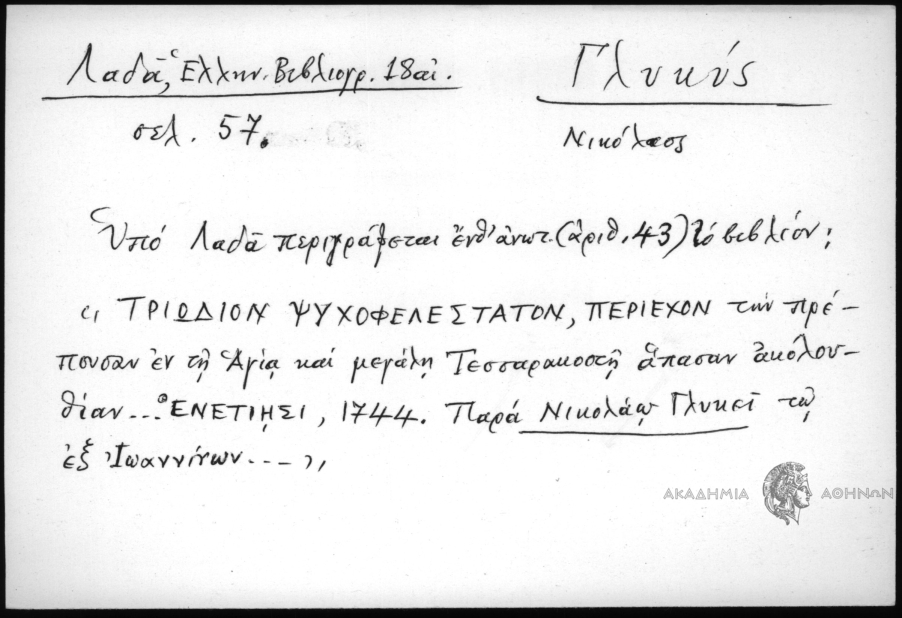 Λαδᾶ, Ἑλλην. Βιβλιογρ. 18 αἰ.
Γλυκύς
σελ. 57.
Νικόλαος
Ὑπό Λαδᾶ περιγράφεται ἔνθ' ἀνωτ. (ἀριθ. 43) τό βιβλίον;
" ΤΡΙΩΔΙΟΝ ΨΥΧΟΦΕΛΕΣΤΑΤΟΝ, ΠΕΡΙΕΧΟΝ τήν πρέ-
πουσαν ἐν τῇ Ἁγίᾳ καί μεγάλῃ Τεσσαρακοστῇ ἅπασαν ἀκολου-
θίαν... ΕΝΕΤΙῌΣΙ, 1744. Παρά Νικολάῳ Γλυκεῖ τῷ
ἐξ Ἰωαννίνων... "
ΑΚΑΔΗΜΙΑ ΑΘΗΝΩΝ